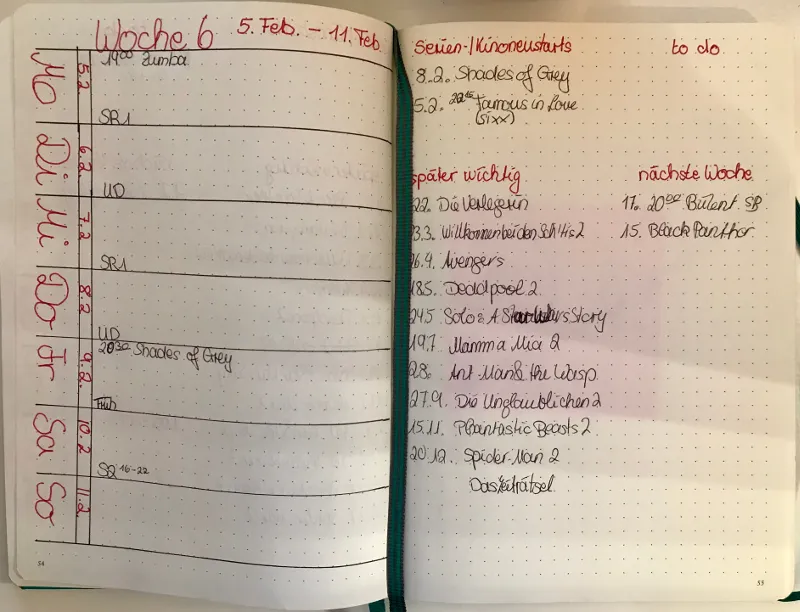 Woche 6 5. Feb. – 11. Feb.
Mo 5.2
19⁰⁰ Zumba
SR1
Di 6.2
UD
Mi 7.2
SR1
Do 8.2
UD
Fr 9.2
20³⁰ Shades of Grey
Früh
Sa 10.2
SQ 16-22
So 11.2
54
Serien-/Kinoneustarts
8.2. Shades of Grey
5.2. 22¹⁵ Famous in Love
(sixx)
to do
später wichtig
22. Die Verlegerin
3.3. Willkommen bei den Sch**is 2
26.4. Avengers
18.5. Deadpool 2
24.5 Solo: A Star Wars Story
19.7 Mamma Mia 2
2.8. Ant-Man & the Wasp
27.9. Die Unglaublichen 2
15.11. Phantastic Beasts 2
20.12. Spider Man 2
nächste Woche
17. 20⁰⁰ Bülent SB
15. Black Panther
55